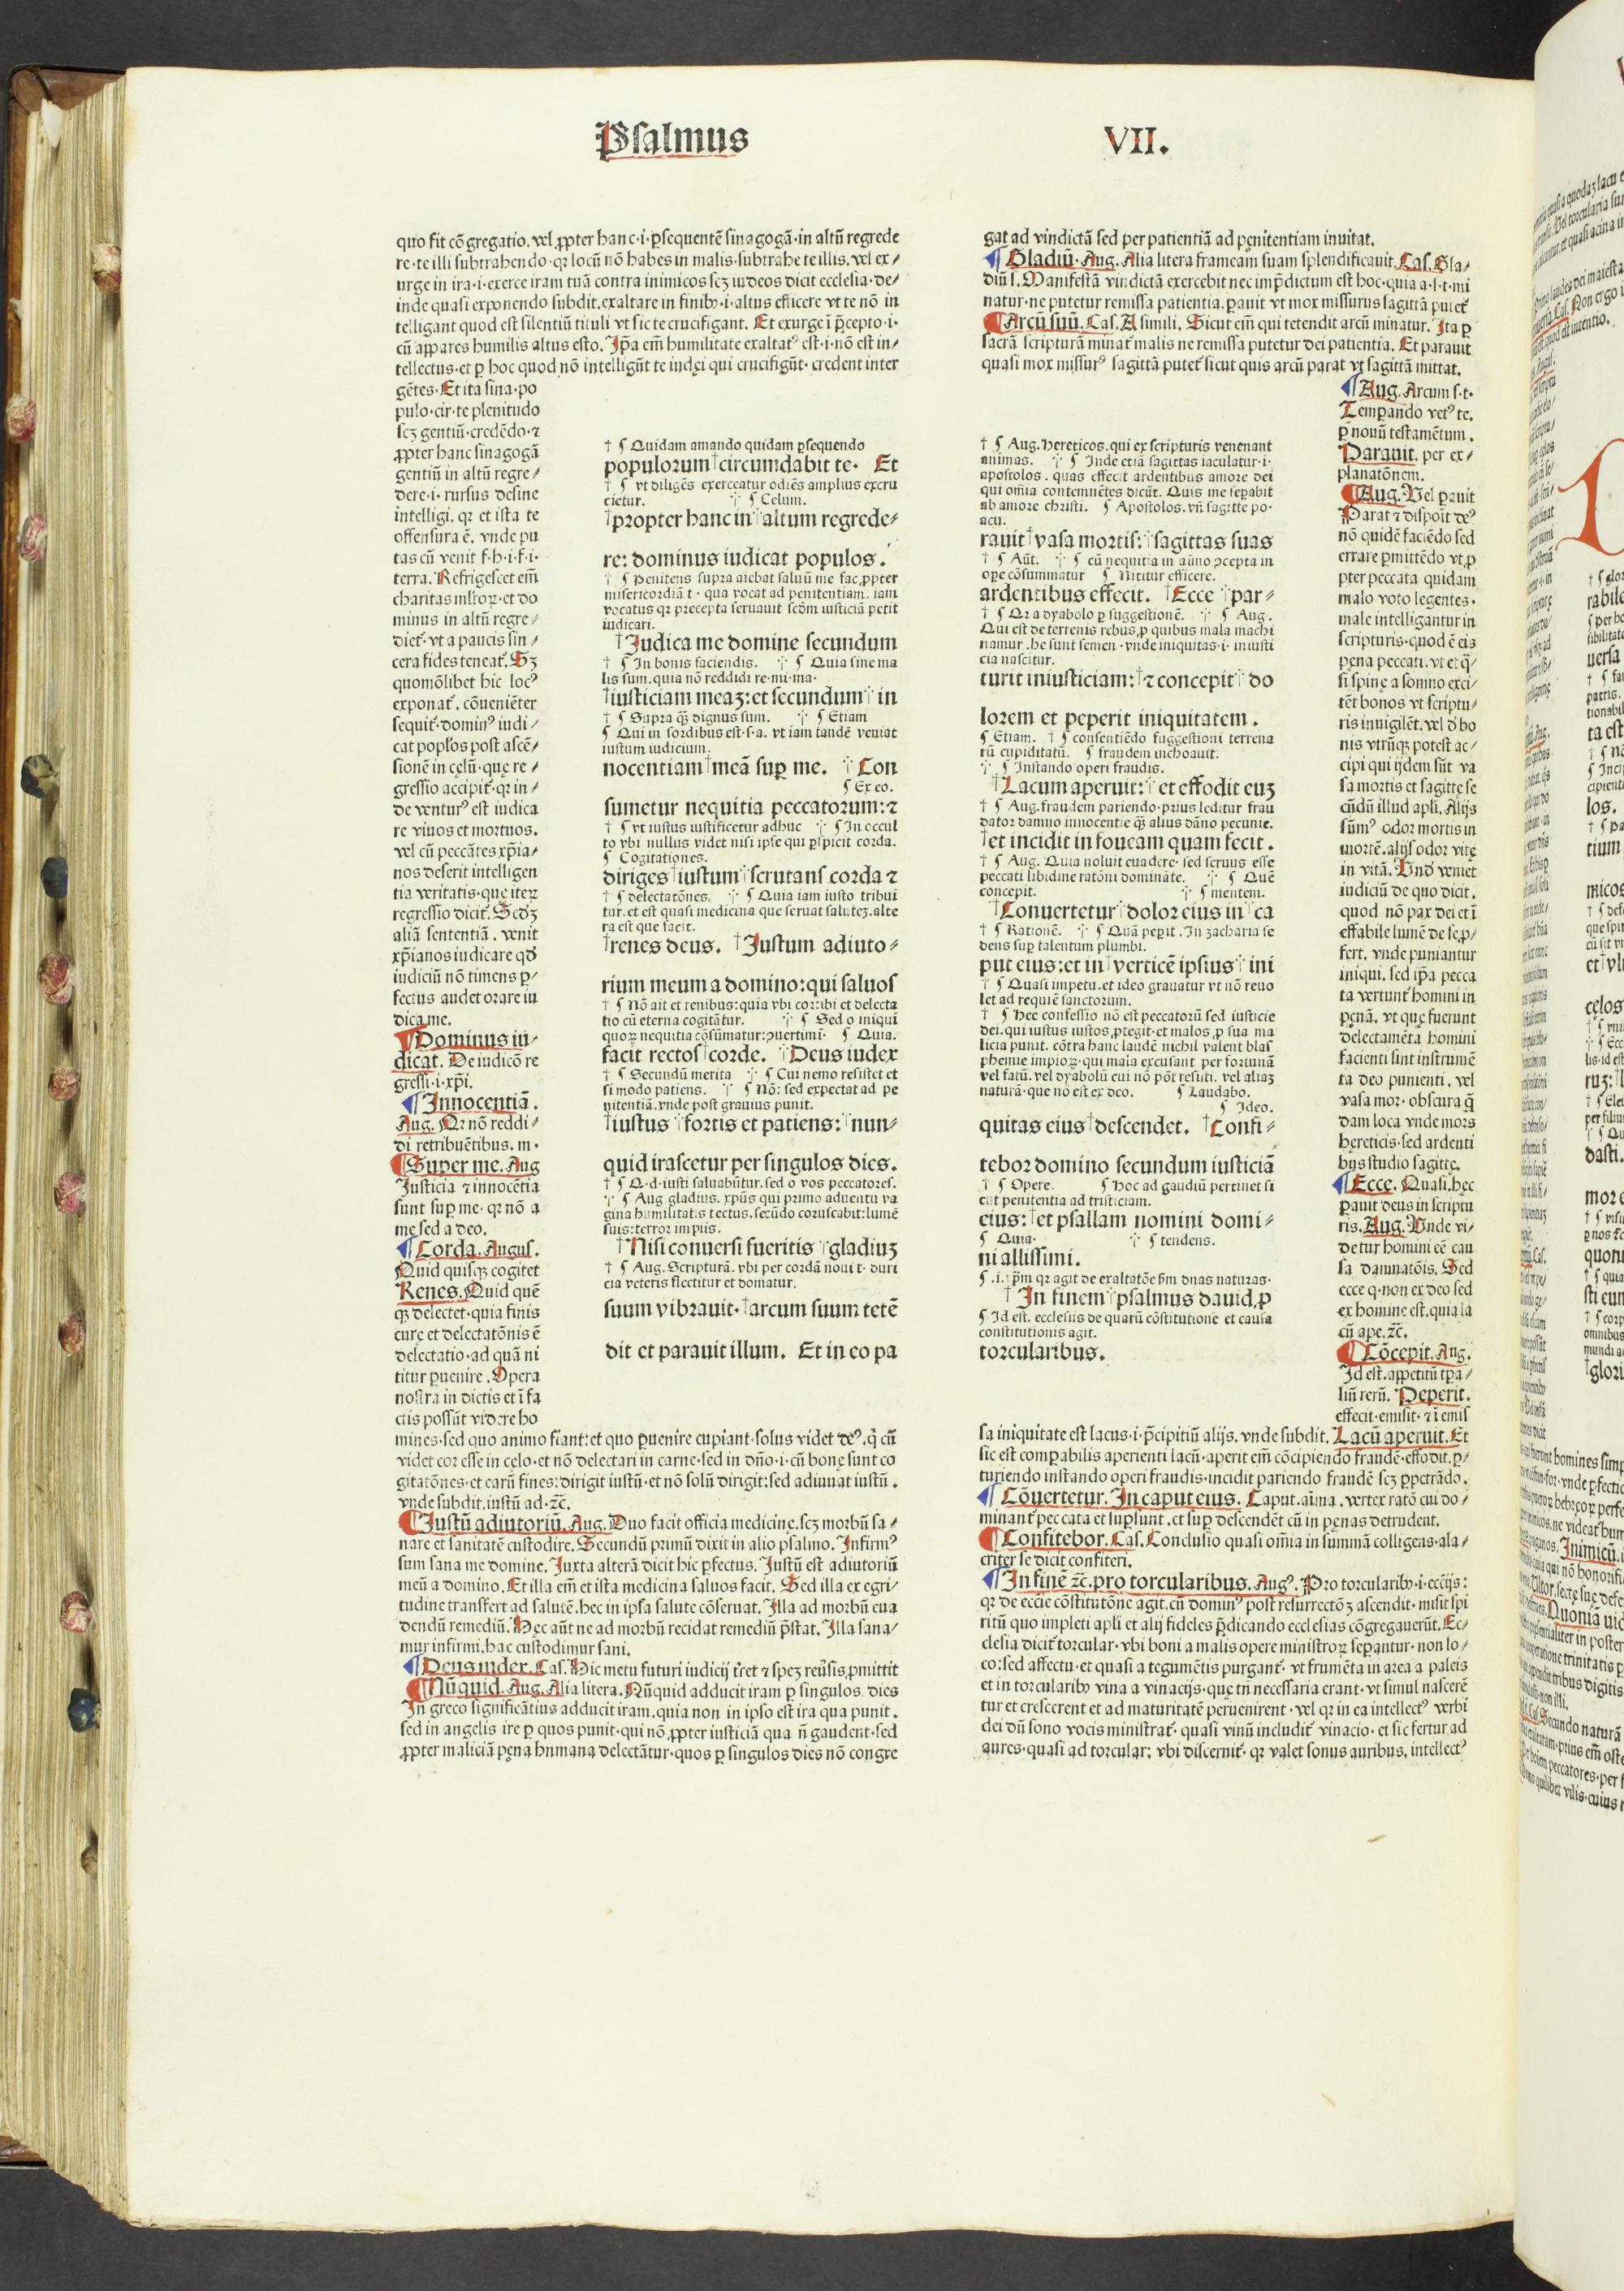 Psalmus
VII.
quo fit cōgregatio. vel ꝓpter hanc·i·ꝑsequentē sinagogā·in altū regrede
re·te illi subtrahendo·qꝛ locū nō habes in malis·subtrahe te illis. vel ex⸗
urge in ira·i·exerce iram tuā contra inimicos scꝫ iudeos dicit ecclesia·de⸗
inde quasi exponendo subdit. exaltare in finibꝰ·i·altus efficere vt te nō in
telligant quod est silentiū tituli vt sic te crucifigant. Et exurge ī p̄cepto·i·
cū appares humilis altus esto. Ip̄a em̄ humilitate exaltatꝰ est·i·nō est in⸗
tellectus·et ꝑ hoc quod nō intelligūt te iudęi qui crucifigūt·credent inter
gētes·Et ita sina·po
pulo·cir·te plenitudo
scꝫ gentiū·credēdo·⁊
ꝓpter hanc sinagogā
gentiū in altū regre⸗
dere·i·rursus desine
intelligi. qꝛ et ista te
offensura ē. vnde pu
tas cū venit f·h·i·f·i·
terra. Refrigescet em̄
charitas mltoꝝ·et do
minus in altū regre⸗
diet᷑·vt a paucis sin⸗
cera fides teneat᷑. Sꝫ
quomōlibet hic locꝰ
exponat᷑. cōueniēter
sequit᷑·dominꝰ iudi⸗
cat popłos post ascē⸗
sionē in cęlū·quę re⸗
gressio accipit᷑·qꝛ in⸗
de venturꝰ est iudica
re viuos et mortuos.
vel cū peccātes xp̄ia⸗
nos deserit intelligen
tia veritatis·que iteꝝ
regressio dicit᷑. Scd̄ꝫ
aliā sententiā. venit
xp̄ianos iudicare qd̄
iudiciū nō timens ꝑ⸗
fectus audet orare iu
dica me.
¶Dominus iu⸗
dicat. De iudicō re
gressi·i·xp̄i.
¶Innocentiā.
Aug. Qꝛ nō reddi⸗
di retribuētibus. m·
¶Super me. Aug
Justicia ⁊ innocētia
sunt suꝑ me·qꝛ nō a
me sed a deo.
¶Corda. Augus.
Quid quisqꝫ cogitet
Renes. Quid quē
qꝫ delectet·quia finis
curę et delectatōnis ē
delectatio·ad quā ni
titur ꝑuenire. Opera
nostra in dictis et ī fa
ctis possūt videre ho
mines·sed quo animo fiant:et quo ꝑuenire cupiant·solus videt deꝰ. q̇ cū
videt cor esse in cęlo·et nō delectari in carne·sed in dn̄o·i·cū bonę sunt co
gitatōnes·et earū fines: dirigit iustū·et nō solū dirigit:sed adiuuat iustū.
vnde subdit. iustū ad·⁊c̄.
¶Justū adiutoriū. Aug. Duo facit officia medicinę. scꝫ morbū sa⸗
nare et sanitatē custodire. Secundū primū dixit in alio psalmo. Infirmꝰ
sum sana me domine. Juxta alterā dicit hic ꝑfectus. Justū est adiutoriū
meū a domino. Et illa em̄ et ista medicina saluos facit. Sed illa ex egri⸗
tudine transfert ad salutē. hec in ipsa salute cōseruat. Illa ad morbū eua
dendū remediū. Hęc aūt ne ad morbū recidat remediū p̄stat. Illa sana⸗
mur infirmi. hac custodimur sani.
¶Deus iudex. Cas. Hic metu futuri iudicij t̄ret ⁊ speꝫ reu̅sis ꝓmittit
¶Nūquid. Aug. Alia litera. Nūquid adducit iram ꝑ singulos dies
In greco significātius adducit iram. quia non in ipso est ira qua punit.
sed in angelis ire ꝑ quos punit·qui nō ꝓpter iusticiā qua n̄ gaudent·sed
ꝓpter maliciā pęna humana delectātur·quos ꝑ singulos dies nō congre
† ¶ Quidam amando quidam ꝑsequendo
populorum †circumdabit te· Et
† ¶ vt diligēs exerceatur odiēs amplius excru
cietur. ⁘ ¶ Celum.
†propter hanc in ⁘altum regrede⸗
re: dominus iudicat populos.
† ¶ Penitens supra aiebat saluū me fac ꝓpter
misericordiā t· qua vocat ad penitentiam. iam
vocatus qꝛ precepta seruauit scd̄m iusticiā petit
iudicari.
†Judica me domine secundum
† ¶ In bonis faciendis. ⁘ ¶ Quia sine ma
lis sum. quia nō reddidi re·mi·ma·
†iusticiam meaꝫ: et secundum ⁘ in
† ¶ Supra qꝫ dignus sum. ⁘ ¶ Etiam
¶ Qui in sordibus est·s·a. vt iam tandē veniat
iustum iudicium.
nocentiam †meā suꝑ me. ⁘Con
¶ Ex eo.
sumetur nequitia peccatorum: ⁊
† ¶ vt iustus iustificetur adhuc ⁘ ¶ In occul
to vbi nullus videt nisi ipse qui ꝑspicit corda.
¶ Cogitationes.
diriges †iustum ⁘scrutans corda ⁊
† ¶ delectatōnes. ⁘ ¶ Quia iam iusto tribui
tur. et est quasi medicina que seruat saluteꝫ. alte
ra est que facit.
†renes deus. †Justum adiuto⸗
rium meum a domino: qui saluos
† ¶ Nō ait et renibus: quia vbi cor: ibi et delecta
tio cū eterna cogitātur. ⁘ ¶ Sed o iniqui
quoꝝ nequitia cōsūmatur: ꝯuertimī· ¶ Quia.
facit rectos †corde. ⁘Deus iudex
† ¶ Secundū merita ⁘ ¶ Cui nemo resistet et
si modo patiens. ⁘ ¶ Nō: sed expectat ad pe
nitentiā. vnde post grauius punit.
†iustus ⁘fortis et patiens: ⁘nun⸗
quid irascetur per singulos dies.
† ¶ Q·d·iusti saluabūtur. sed o vos peccatores.
⁘ ¶ Aug gladius. xp̄us qui primo aduentu va
gina humilitatis tectus. secūdo coruscabit: lumē
suis: terror impiis.
†Nisi conuersi fueritis ⁘gladiuꝫ
† ¶ Aug. Scripturā. vbi per cordā noui t· duri
cia veteris flectitur et domatur.
suum vibrauit· †arcum suum tetē
dit et parauit illum. Et in eo pa
gat ad vindictā sed per patientiā ad pęnitentiam inuitat.
¶Gladiū. Aug. Alia litera frameam suam splendificauit. Cas. Gla⸗
diū s. Manifestā vindictā exercebit nec imp̄dictum est hoc·quia a·s·t·mi
natur·ne putetur remissa patientia. ꝑauit vt mox missurus sagittā putet᷑
¶Arcū suū. Cas. A simili. Sicut em̄ qui tetendit arcū minatur. Ita ꝑ
sacrā scripturā minat᷑ malis ne remissa putetur dei patientia. Et parauit
quasi mox missurꝰ sagittā putet᷑ sicut quis arcū parat vt sagittā mittat.
† ¶ Aug. Hereticos. qui ex scripturis venenant
animas. ⁘ ¶ Inde etiā sagittas iaculatur·i·
apostolos. quas effecit ardentibus amore dei
qui om̄ia contemnētes dicūt. Quis me seꝑabit
ab amore christi. ¶ Apostolos. vn̄ sagitte po·
acu.
rauit †vasa mortis: ⁘sagittas suas
† ¶ Aūt. ¶ cū nequitia in aīmo ꝯcepta in
oꝑe cōsummatur ¶ Nititur efficere.
ardentibus effecit. †Ecce ⁘par⸗
† ¶ Qꝛ a dyabolo ꝑ suggestionē. ⁘ ¶ Aug.
Qui est de terrenis rebus ꝓ quibus mala machi
namur. he sunt semen·vnde iniquitas·i·iniusti
cia nascitur.
turit iniusticiam: †⁊ concepit ⁘ do
lorem et pęperit iniquitatem.
¶ Etiam. † ¶ consentiēdo suggestioni terrena
rū cupiditatū. ¶ fraudem inchoauit.
⁘ ¶ Instando operi fraudis.
†Lacum aperuit: ⁘ et effodit euꝫ
† ¶ Aug. fraudem pariendo·prius leditur frau
dator damno innocentie qꝫ alius dāno pecunie.
†et incidit in foueam quam fecit.
† ¶ Aug. Quia noluit euadere·sed seruus esse
peccati libidine ratōni domināte. ⁘ ¶ Quē
concepit. ⁘ ¶ mentem.
†Conuertetur ⁘dolor eius in ⁘ca
† ¶ Rationē. ⁘ ¶ Quā peꝑit. In zacharia se
dens suꝑ talentum plumbi.
put eius: et in †verticē ipsius ⁘ ini
† ¶ Quasi impetu. et ideo grauatur vt nō reuo
let ad requiē sanctorum.
† ¶ Hec confessio nō est peccatorū sed iusticie
dei. qui iustus iustos ꝓtegit·et malos ꝓ sua ma
licia punit. cōtra hanc laudē nichil valent blas
phemie impioꝝ·qui mala excusant per fortunā
vel fatū. vel dyabolū cui nō pōt resisti. vel aliaꝫ
naturā·que nō est ex deo. ¶ Laudabo.
¶ Ideo.
quitas eius ⁘descendet. †Confi⸗
tebor domino secundum iusticiā
† ¶ Opere. ¶ Hoc ad gaudiū pertinet si
cut penitentia ad tristiciam.
eius: †et psallam nomini domi⸗
¶ Quia· ⁘ ¶ tendens.
ni altissimi.
¶ .i. p̄m qꝛ agit de exaltatōe ẜm duas naturas·
† In finem ⁘psalmus dauid ꝓ
¶ Id est. ecclesiis de quarū cōstitutione et causa
constitutionis agit.
torcularibus.
¶Aug. Arcum s·t·
Temꝑando vetꝰ te.
ꝑ nouū testamētum.
Parauit. per ex⸗
planatōnem.
¶Aug. Vel ꝑauit
Parat ⁊ dispōit deꝰ
nō quidē faciēdo sed
errare ꝑmittēdo vt ꝓ
pter peccata quidam
malo voto legentes·
male intelligantur in
scripturis·quod ē eis
pęna peccati. vt et q̄⸗
si spinę a somno exci⸗
tēt bonos vt scriptu⸗
ris inuigilēt. vel d̄ bo
nis vtrūqꝫ potest ac⸗
cipi qui ijdem sūt va
sa mortis et sagittę se
cūdū illud apłi. Alijs
sūmꝰ odor mortis in
mortē. alijs odor vitę
in vitā. Vnd̄ veniet
iudiciū de quo dicit.
quod nō pax dei et ī
effabile lumē de se ꝓ⸗
fert. vnde puniantur
iniqui. sed ip̄a pecca
ta vertunt᷑ homini in
pęnā. vt quę fuerunt
delectamēta homini
facienti sint instrumē
ta deo punienti. vel
vasa mor· obscura q̄
dam loca vnde mors
hęreticis·sed ardenti
bus studio sagittę.
¶Ecce. Quasi. hęc
ꝑauit deus in scriptu
ris. Aug. Vnde vi⸗
detur homini eē cau
sa damnatōis. Sed
ecce q·non ex deo sed
ex homine est. quia la
cū ape. ⁊c̄.
¶Cōcepit. Aug.
Id est. appetitū tꝑa⸗
liū rerū. Peperit.
effecit·emisit·⁊ ī emis
sa iniquitate est lacus·i·p̄cipitiū alijs. vnde subdit. Lacū aperuit. Et
sic est comꝑabilis aperienti lacū·aperit em̄ cōcipiendo fraudē·effodit. ꝑ⸗
turiendo instando operi fraudis·incidit pariendo fraudē scꝫ ꝑpetrādo.
¶Cōuertetur. In caput eius. Caput. aīma. vertex ratō cui do⸗
minant᷑ peccata et suꝑsunt. et suꝑ descendēt cū in pęnas detrudent.
¶Confitebor. Cas. Conclusio quasi om̄ia in summā colligens·ala⸗
criter se dicit confiteri.
¶In finē ⁊c̄. pro torcularibus. Augꝰ. Pro torcularibꝰ·i·eccijs:
qꝛ de eccie cōstitutōne agit. cū dominꝰ post resurrectōꝫ ascendit·misit spi
ritū quo impleti apłi et alij fideles p̄dicando ecclesias cōgregauerūt. Ec⸗
clesia dicit᷑ torcular·vbi boni a malis opere ministroꝝ seꝑantur·non lo⸗
co: sed affectu·et quasi a tegumētis purgant᷑·vt frumēta in area a paleis
et in torcularibꝰ vina a vinacijs·quę tn̄ necessaria erant·vt simul nascerē
tur et crescerent et ad maturitatē peruenirent·vel qꝛ in ea intellectꝰ verbi
dei dū sono vocis ministrat᷑·quasi vinū includit᷑ vinacio·et sic fertur ad
aures·quasi ad torcular: vbi discernit᷑·qꝛ valet sonus auribus. intellectꝰ